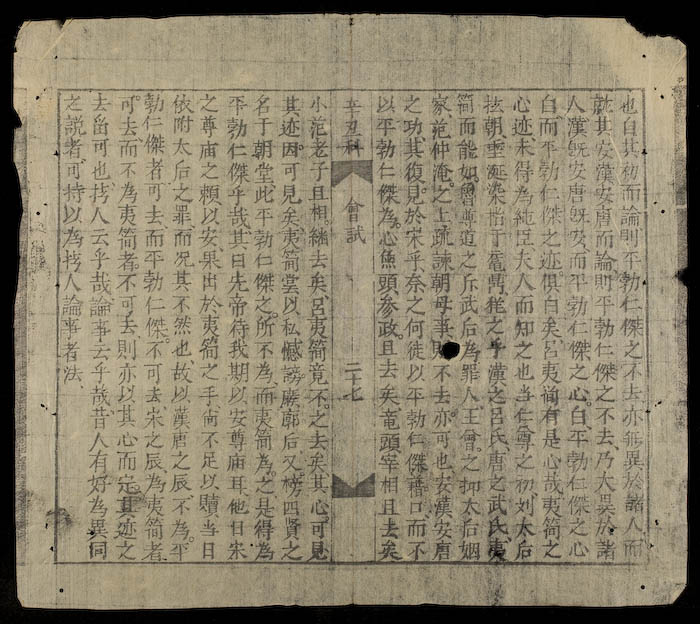 也白其初而論則平勃仁傑之不去亦無異於諸人而
就其安漢安唐而論則平勃仁傑之不去乃大異於諸
人漢既安唐既安而平勃仁傑之心白平勃仁傑之心
白而平勃仁傑之迹俱白矣呂夷簡有是心哉夷簡之
心迹未得為純臣夫人而知之也當仁尊之初刘太后
抜朝垂涎染指于電鬯毪之乎漢之呂氏唐之武氏夷
簡而能如魯尊道之斥武后為罪人王曾之抑太后姻
家范仲淹之上疏諫朝母事則不去亦可也安漢安唐
之功其復見於宋乎奈之何徒以平勃仁傑藉口而不
以平勃仁傑為心魚頭參政且去矣竜頭宰相且去矣
辛丑科 會試 二十七
小范老子且相継去矣呂夷簡竟不之去矣其心可見
其迹因可見矣夷簡嘗以私憾謗廢郭后又榜四賢之
名于朝堂此平勃仁傑之所不為而夷簡為之是得為
平勃仁傑乎哉其曰先帝待我期以安尊庙耳他日朱
之尊庙之頼以安果出於夷簡之手尚不足以贖当日
依附太后之罪而况其不然也故以漢唐之辰不為平
勃仁傑者可去而平勃仁傑不可去宋之辰為夷簡者
可去而不為夷簡者不可去則亦以其心而定其迹之
去留可也拷人云乎哉論事云乎哉昔人有好為異同
之説者可持以為拷人論事者法